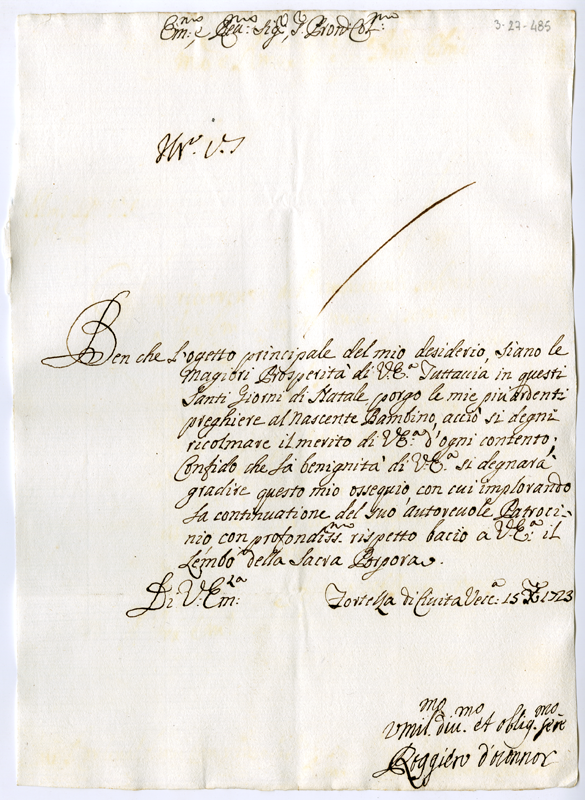 Em.mo e Rev.mo Sig.r, S.r Pron. Col.mo
3-27-485
Ben che l'ogetto principale del mio desiderio, siano le
magiori Prosperità di V.E.a Tuttavia in questi
Santi Giorni di Natale porgo le mie piu ardenti
preghiere al Nascente Bambino, acciò si degni
ricolmare il merito di V.E.a d'ogni contento;
Confido che la benignità di V.E.a si degnarà
gradire questo mio ossequio, con cui implorando
la continuatione del suo autorevole Patroci-
nio con profondiss.mo rispetto bacio a V.E.a il
Lembo della Sacra Porpora.
Di V. Em.za
Fortezza di Civita Vecc.a 15 Xbre 1723
vmil.mo div.mo et oblig.mo sere
Ruggiero d'oconnor